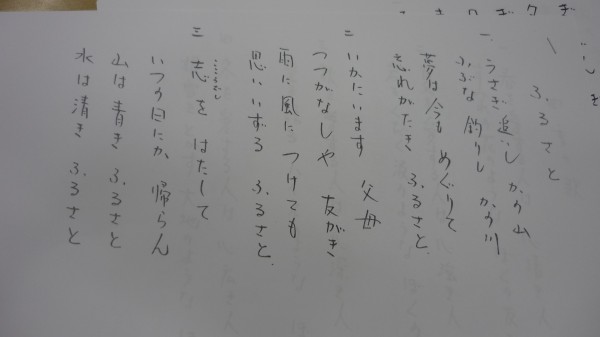 ふるさと
一、うさぎ追いし かの山
ふぶな釣りし かの川
夢は今も めぐりて
忘れがたき ふるさと
二 いかにいます 父母
つつがなしや 友がき
雨に風に つけても
思いいずる ふるさと
三 志を はたして
こころざし
いつの日にか 帰らん
山は青き ふるさと
水は清き ふるさと